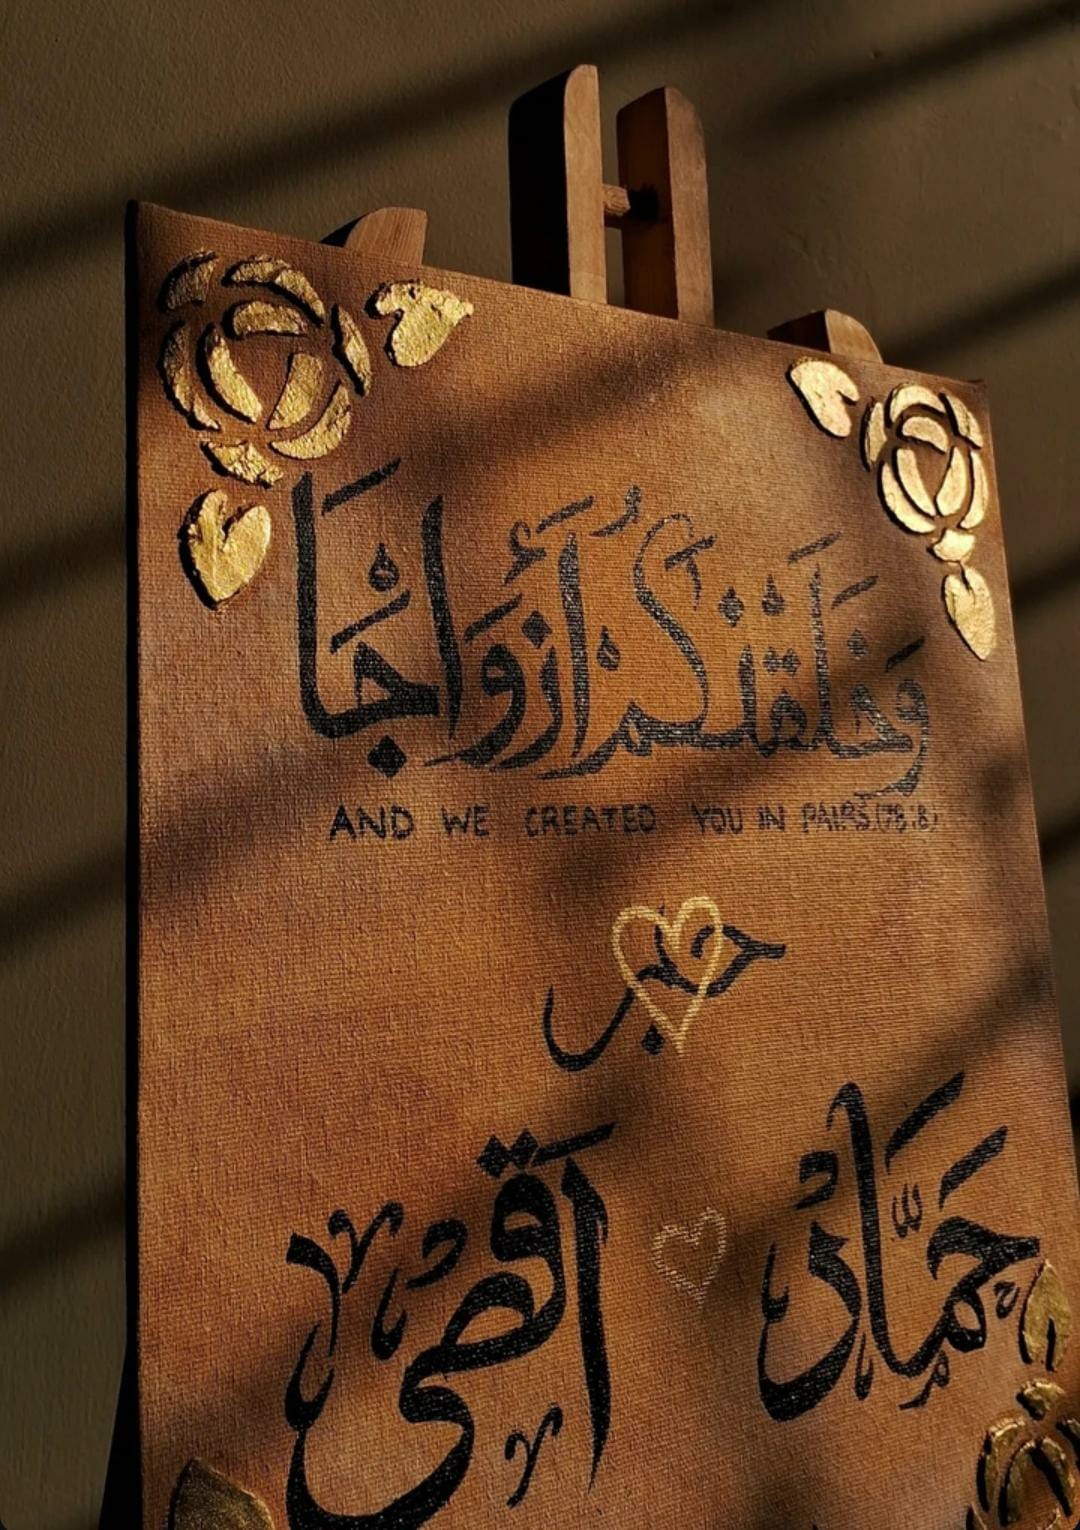 وَخَلَقْنٰكُمْ أَزْوَاجًا
AND WE CREATED YOU IN PAIRS.(78:8)
حَمَّاد اَقصٰی